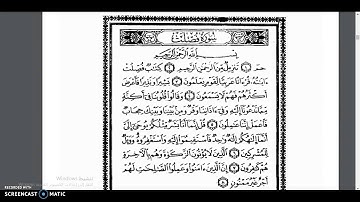 سورة فصلت
بسم الله الرحمن الرحيم
حم ۝١ تنزيل من الرحمن الرحيم ۝٢ كتاب فصلت
ءايته قرءانا عربيا لقوم يعلمون ۝٣ بشيرا ونذيرا فأعرض
أكثرهم فهم لا يسمعون ۝٤ وقالوا قلوبنا في أكنة
مما تدعونا إليه وفي ءاذاننا وقر ومن بيننا وبينك حجاب
فاعمل إننا عاملون ۝٥ قل إنما أنا بشر مثلكم يوحى إلي
أنما إلهكم إله واحد فاستقيموا إليه واستغفروه وويل
للمشركين ۝٦ الذين لا يؤتون الزكوة وهم بالآخرة
هم كافرون ۝٧ إن الذين ءامنوا وعملوا الصالحات لهم
أجر غير ممنون ۝٨
Windows
RECORDED WITH
SCREENCAST MATIC